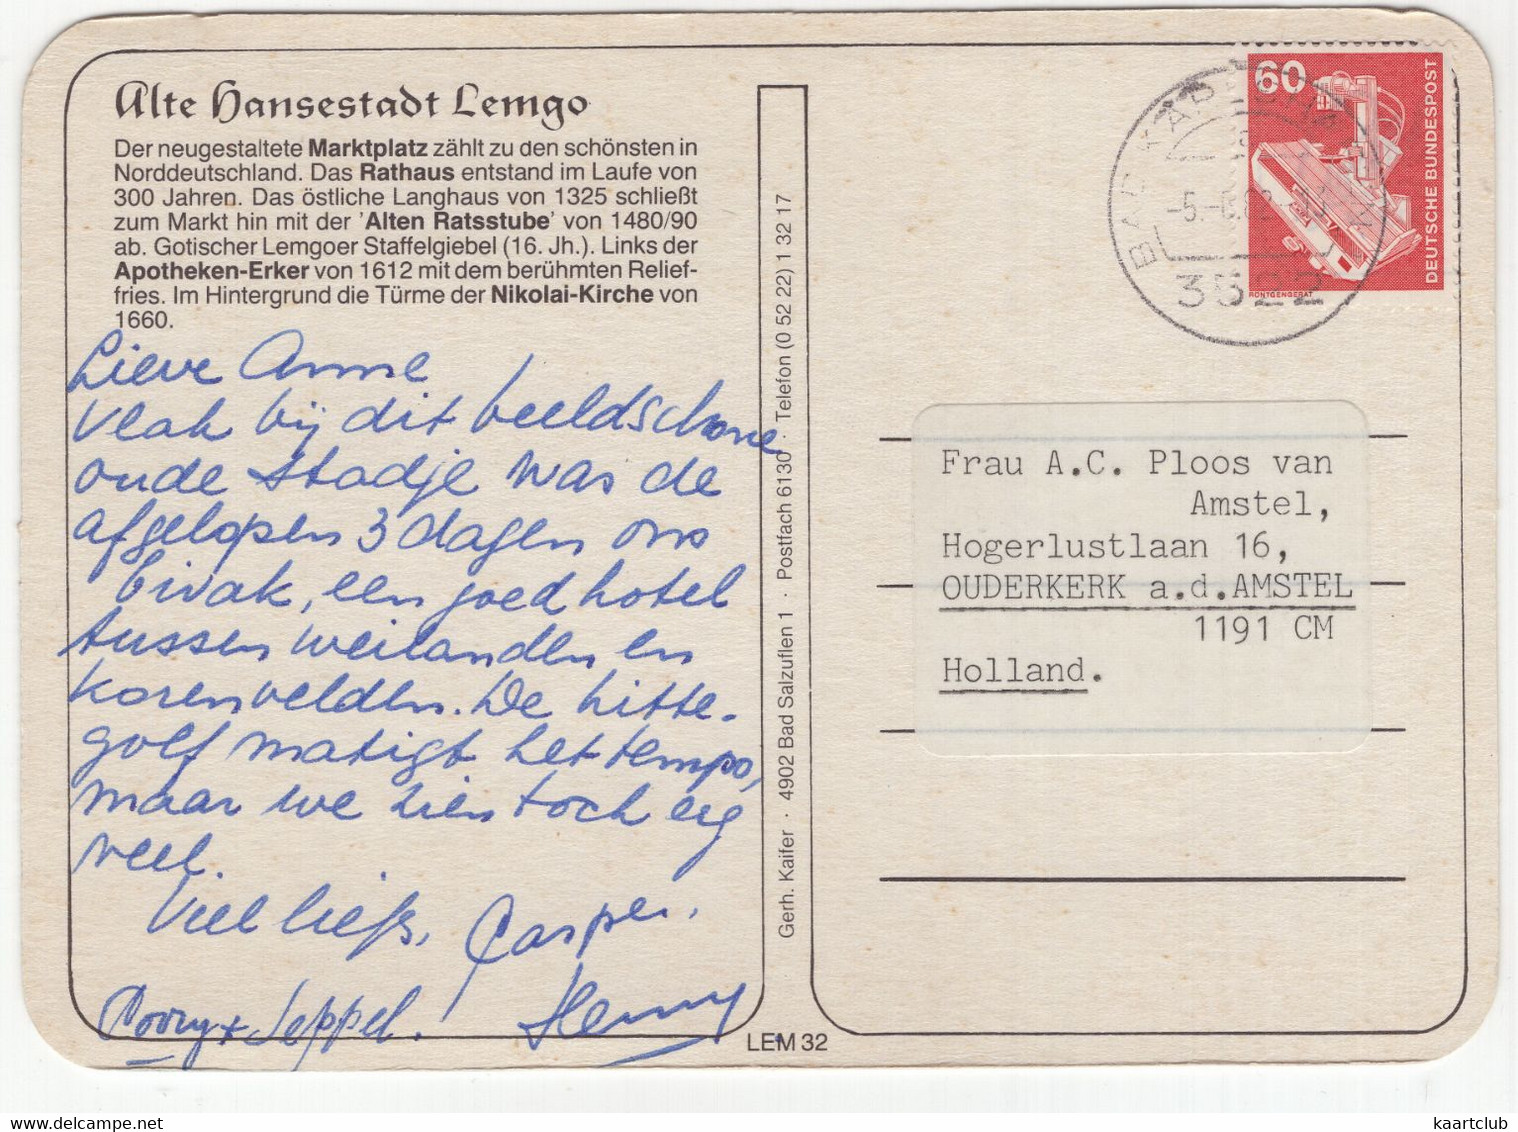 Alte Hansestadt Lemgo
Der neugestaltete Marktplatz zählt zu den schönsten in
Norddeutschland. Das Rathaus entstand im Laufe von
300 Jahren. Das östliche Langhaus von 1325 schließt
zum Markt hin mit der 'Alten Ratsstube' von 1480/90
ab. Gotischer Lemgoer Staffelgiebel (16. Jh.). Links der
Apotheken-Erker von 1612 mit dem berühmten Relief-
fries. Im Hintergrund die Türme der Nikolai-Kirche von
1660.
Lieve Anne
Vlak bij dit beeldschone
oude stadje was de
afgelopen 3 dagen ons
bivak, een goed hotel
tussen weilanden en
korenvelden. De hitte-
golf matigt het tempo,
maar we zien toch erg
veel.
Viel liefs, Casper,
Corry + Seppel. Henny
Gerh. Kaifer · 4902 Bad Salzuflen 1 · Postfach 6130 · Telefon (0 52 22) 1 32 17
LEM 32
60
DEUTSCHE BUNDESPOST
RÖNTGENGERÄT
BAD KARLSHAFEN
3522
Frau A.C. Ploos van
Amstel,
Hogerlustlaan 16,
OUDERKERK a.d.AMSTEL
1191 CM
Holland.
kaartclub